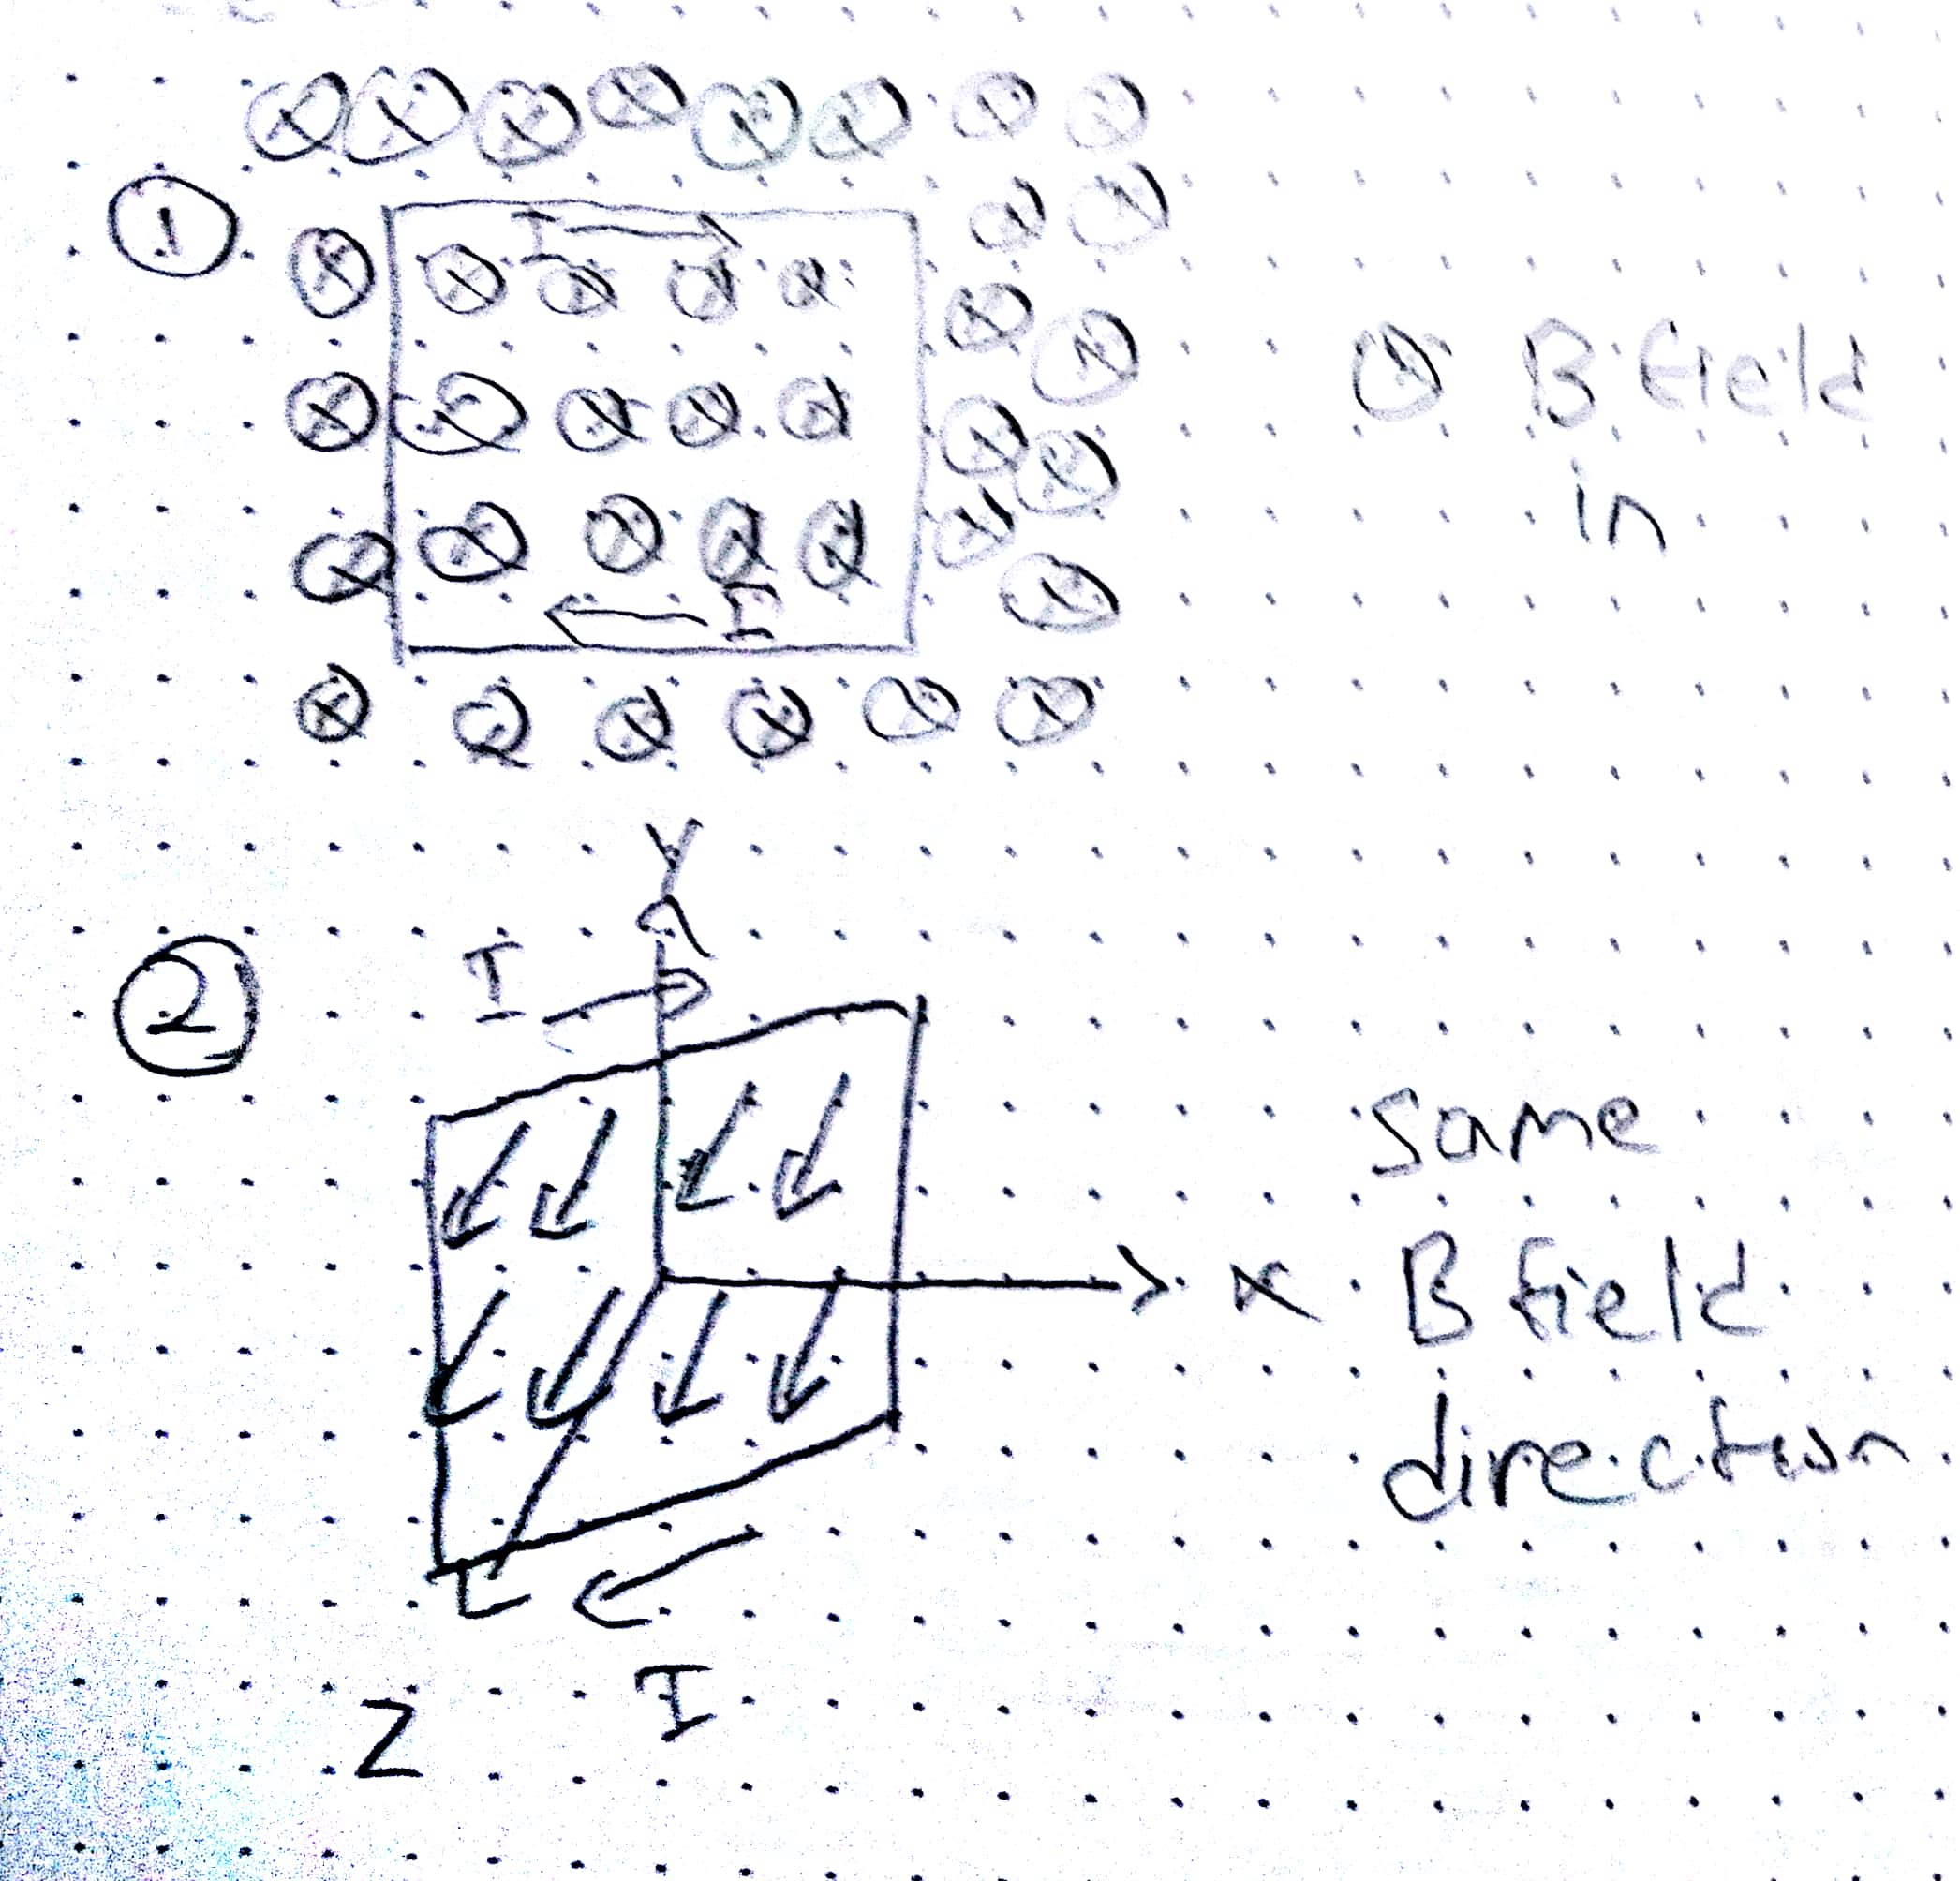 1
I
B field
in
I
Y
2
I
same
x
B field
direction
I
Z